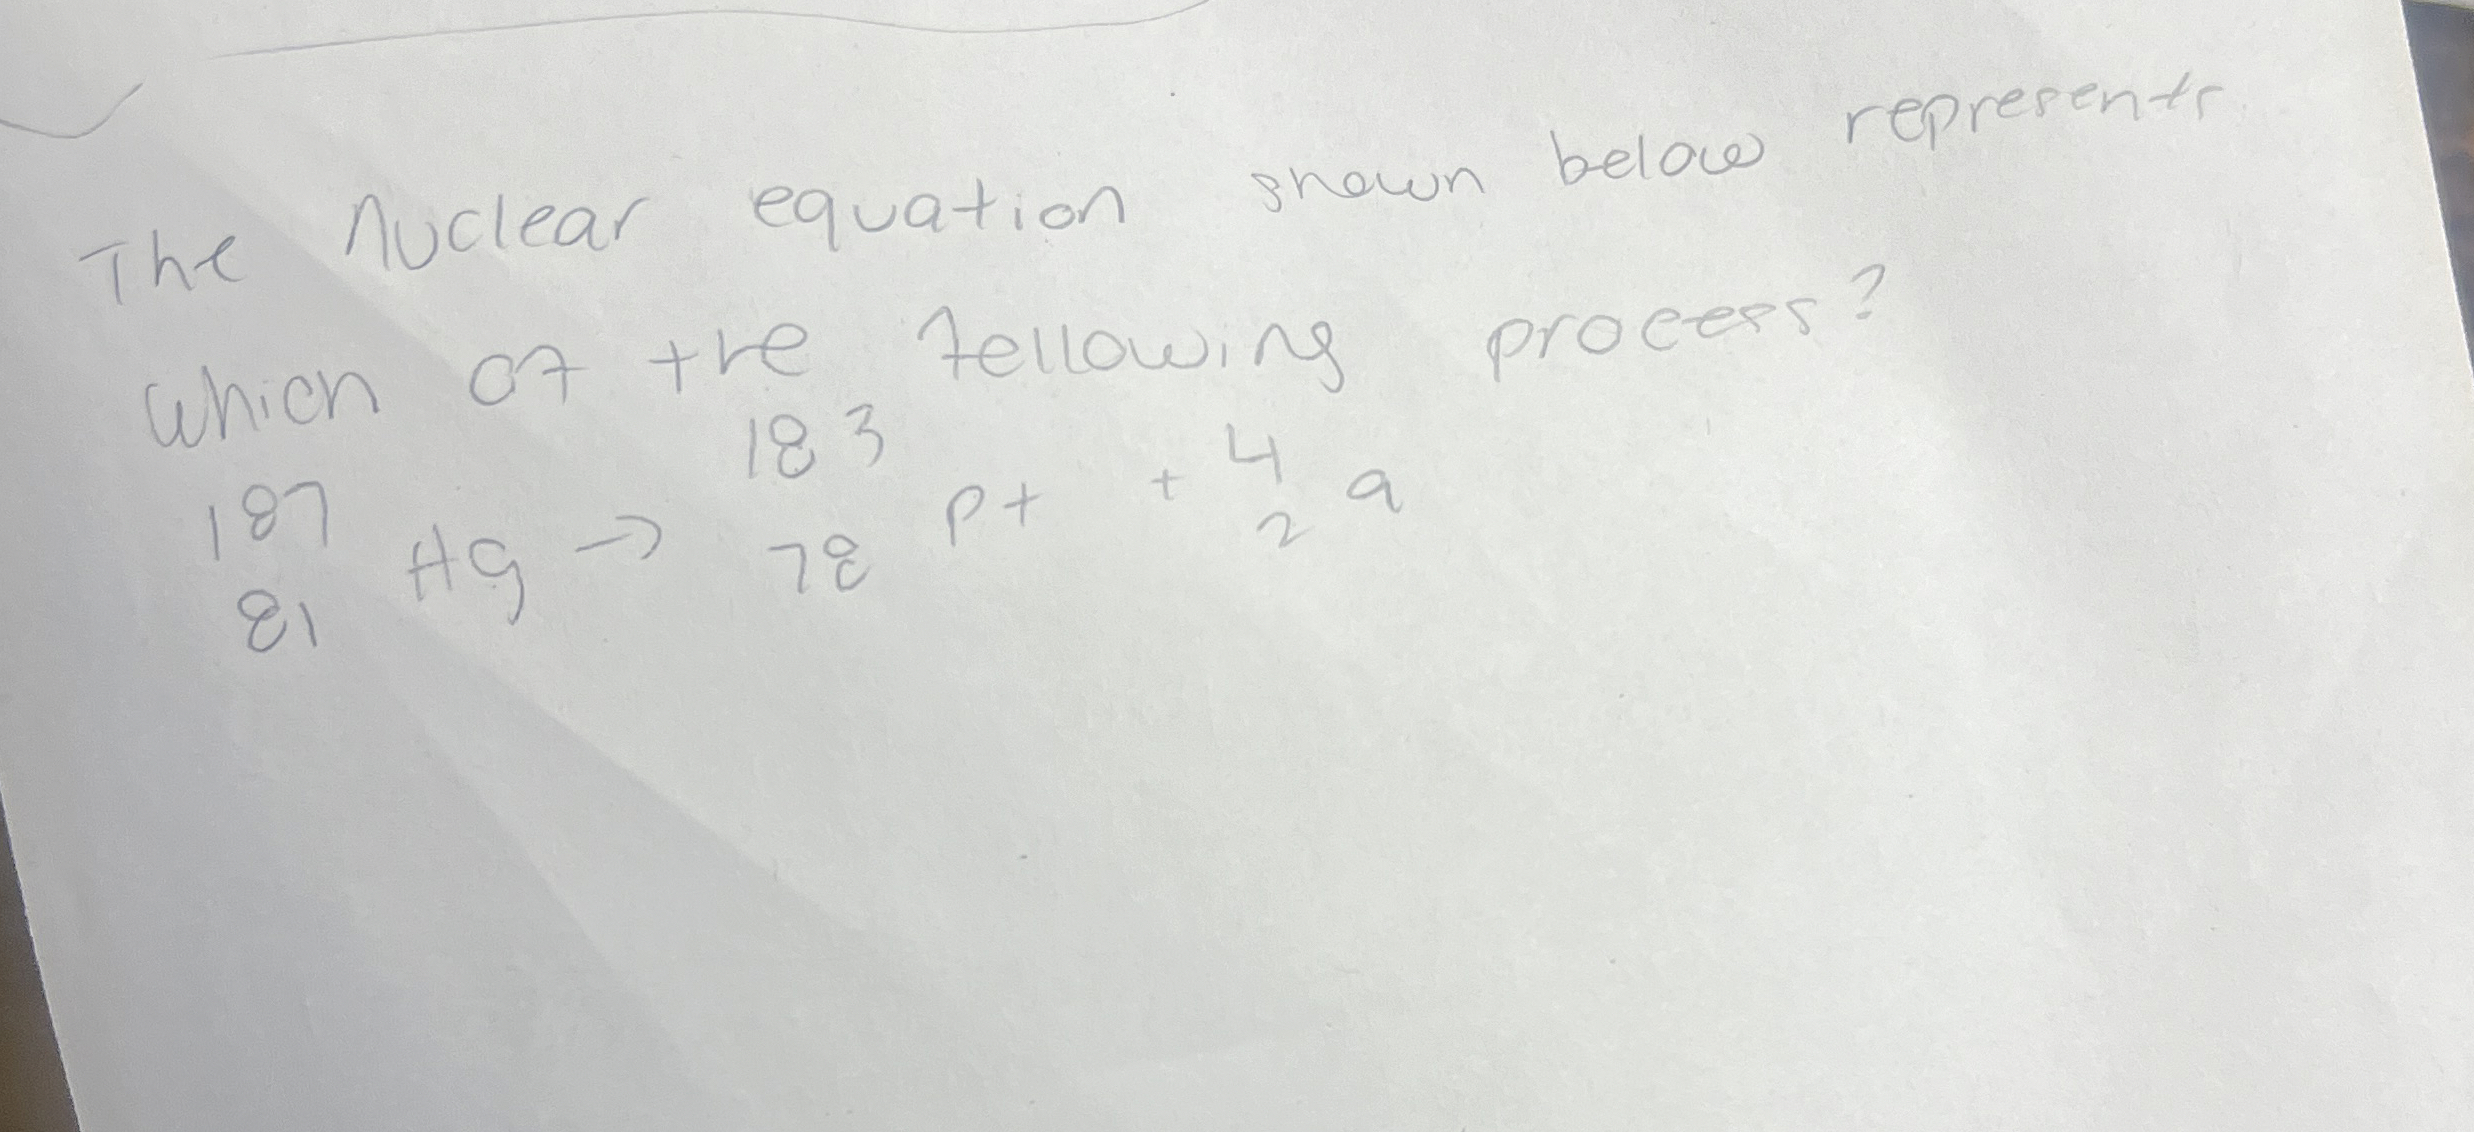 The nuclear equation shown below represents
which of the following process?
187 183 4
Hg → Pt + a
81 78 2